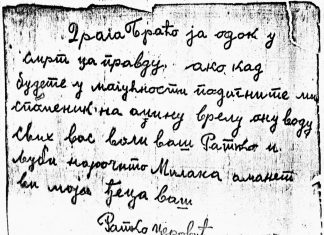 Драга Браћо ја одок у
смрт за правду. ако кад
будете у могућности подигните ми
споменик на ацину врелу ону воду
свих вас воли ваш Ратко и
љуби нарочито Милака аманет
ви моја ђеца ваш
Ратко